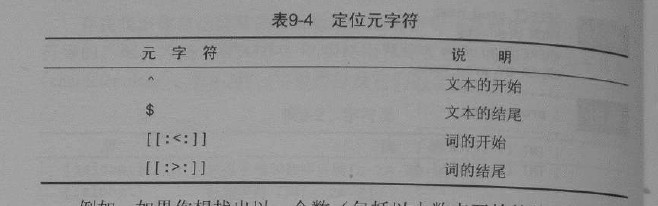 表9-4 定位元字符
元 字 符 说 明
^ 文本的开始
$ 文本的结尾
[[:<:]] 词的开始
[[:>:]] 词的结尾
例如，如果你想找出以一个数（包括以小数点开始的